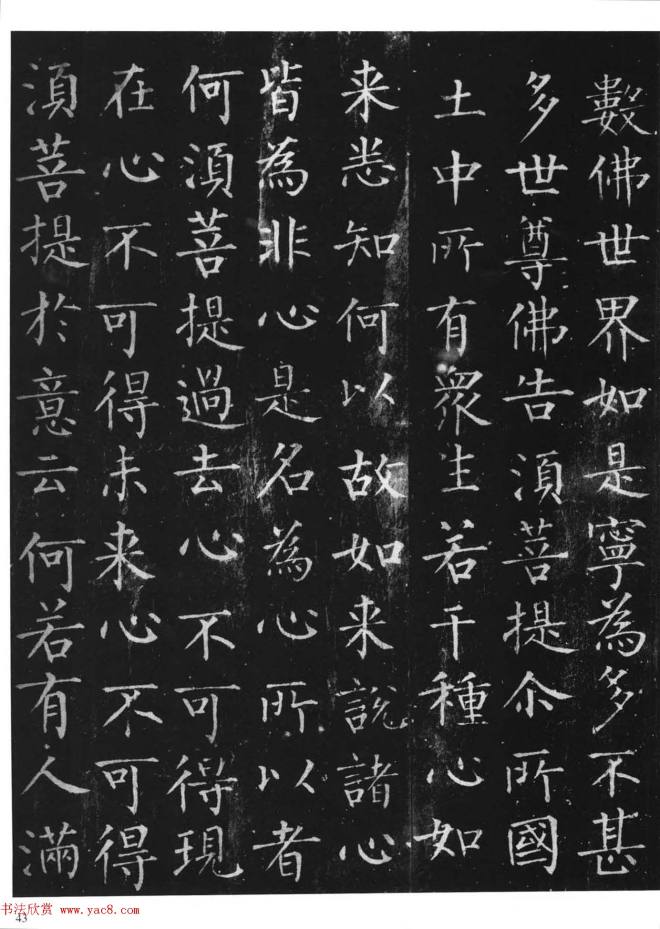 數佛世界如是寧為多不甚
多世尊佛告湏菩提尒所國
土中所有衆生若干種心如
来悉知何以故如来說諸心
皆為非心是名為心所以者
何湏菩提過去心不可得現
在心不可得未来心不可得
湏菩提於意云何若有人滿
书法欣赏 www.yac8.com
43